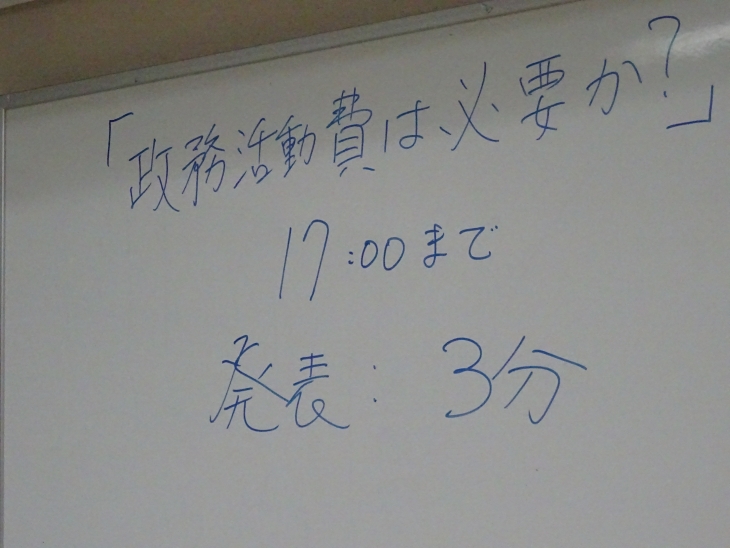 「政務活動費は必要か?」
17:00まで
発表: 3分